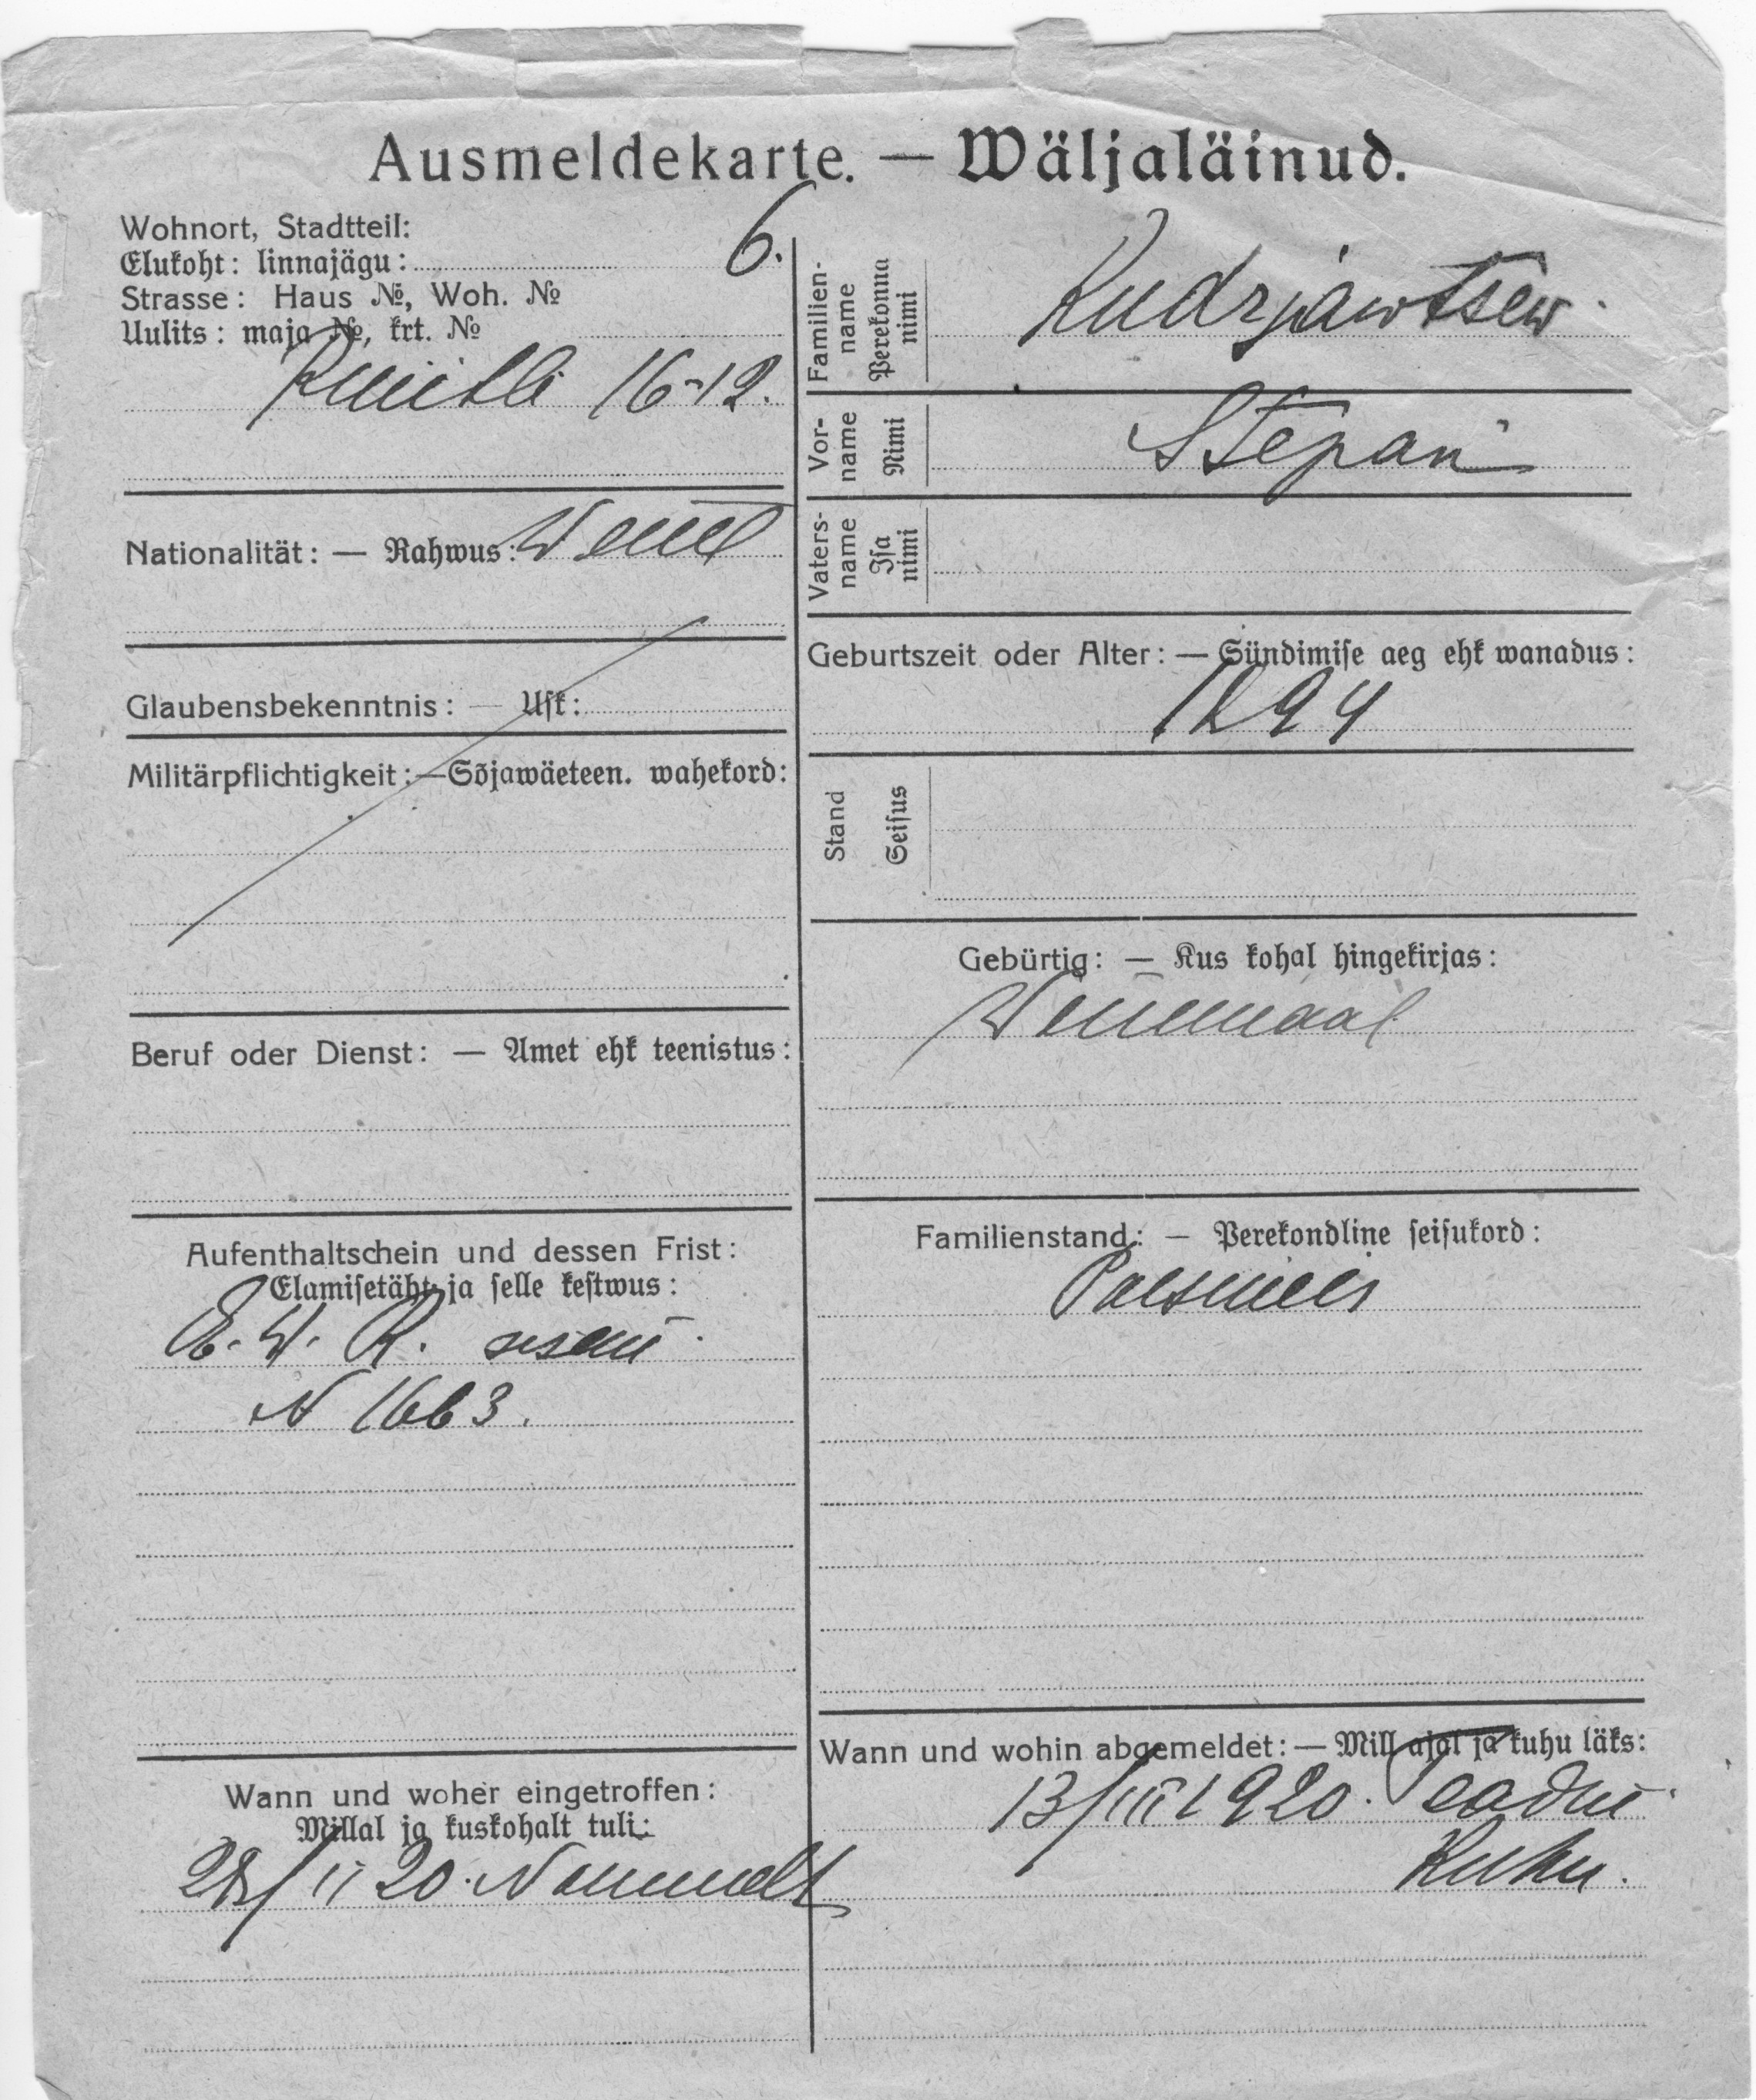 Ausmeldekarte. — Wäljaläinud.
Wohnort, Stadtteil:
Elukoht: linnajägu: 6.
Strasse: Haus №, Woh. №
Uulits: maja №, krt. №
16-12.
Nationalität: — Rahwus: Wene
Glaubensbekenntnis: — Uſk:
Militärpflichtigkeit: — Sõjawäeteen. wahekord:
Beruf oder Dienst: — Amet ehk teenistus:
Aufenthaltschein und dessen Frist:
Elamiſetäht ja ſelle keſtwus:
E. W. R.
N 1663.
Wann und woher eingetroffen:
Millal ja kuskohalt tuli:
28/II 20.
Familien-
name
Perekonna
nimi
Kudrjawtsew.
Vor-
name
Nimi
Stepan
Vaters-
name
Iſa
nimi
Geburtszeit oder Alter: — Sündimiſe aeg ehk wanadus:
1894
Stand
Seiſus
Gebürtig: — Kus kohal hingekirjas:
Wenemaal
Familienstand: — Perekondline ſeiſukord:
Poismees
Wann und wohin abgemeldet: — Mill ajal ja kuhu läks:
13/III 1920. Teadm.
Kuhu.